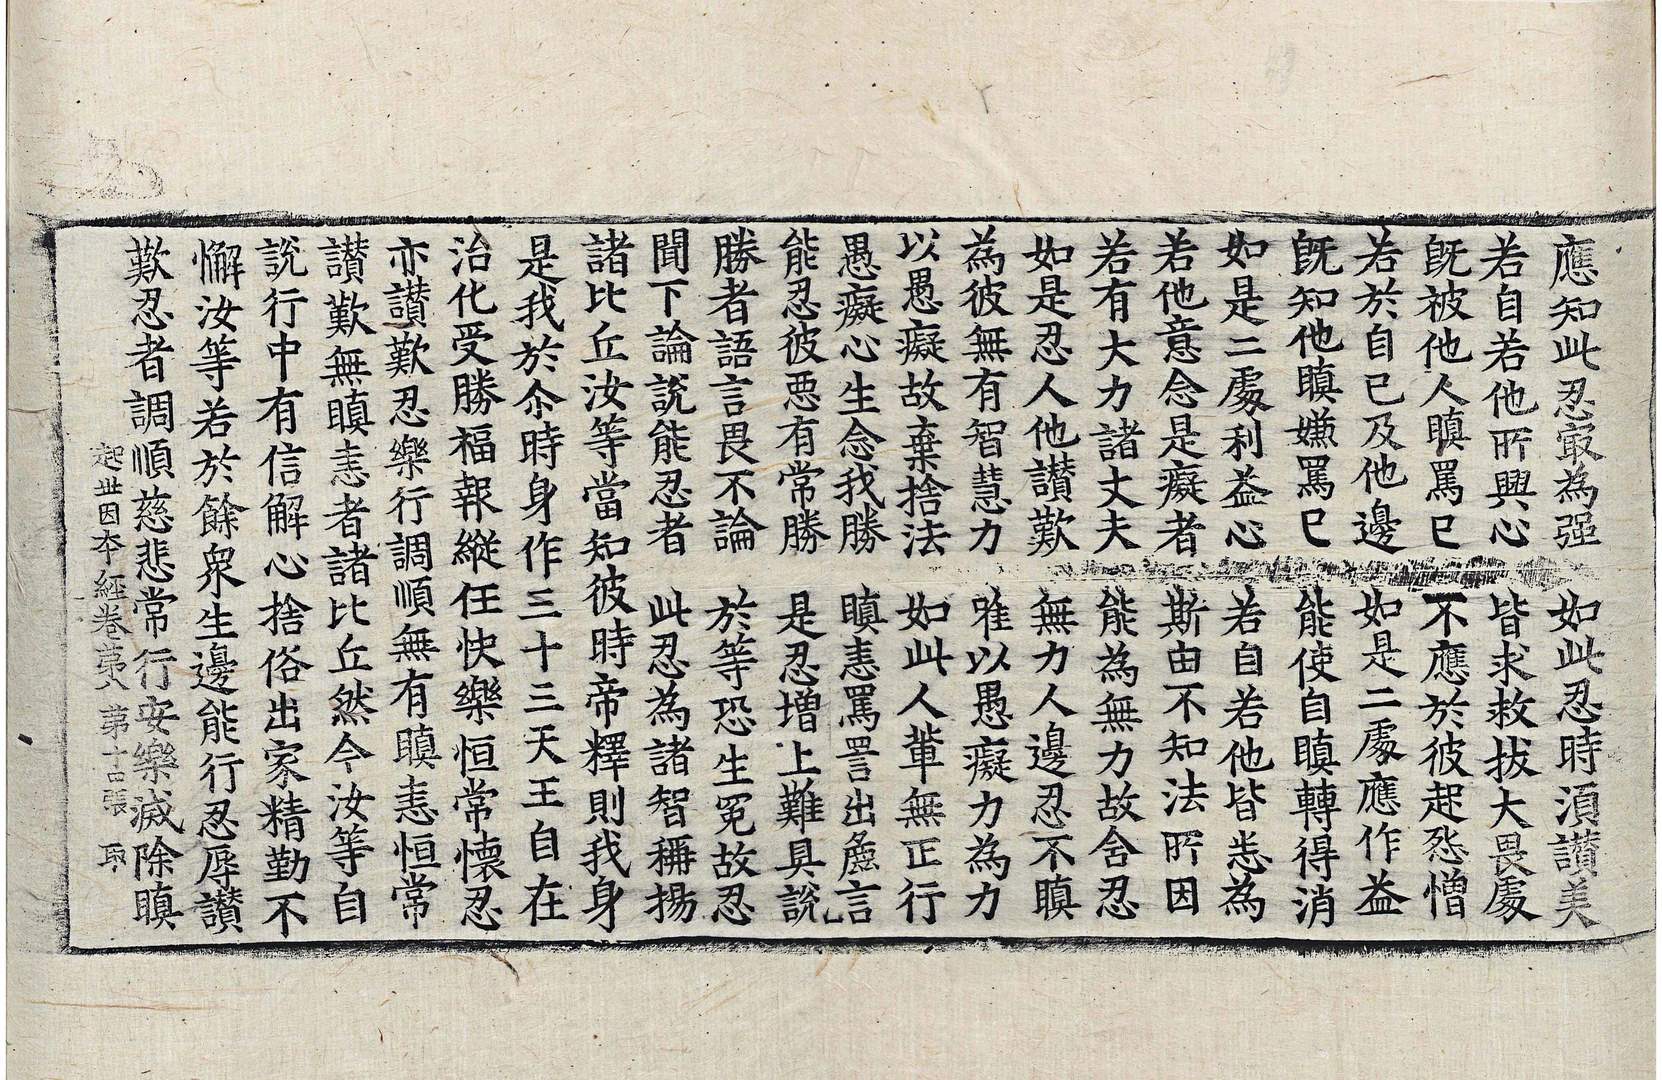 應知此忍㝡為强　如此忍時須讃美
若自若他所興心　皆求救拔大畏處
旣被他人瞋罵已　不應於彼起怨憎
若於自已及他邊　如是二處應作益
旣知他瞋嫌罵已　能使自瞋轉得消
如是二處利益心　若自若他皆悉為
若他意念是癡者　斯由不知法所因
若有大力諸丈夫　能為無力故含忍
如是忍人他讃歎　無力人邊忍不瞋
為彼無有智慧力　唯以愚癡力為力
以愚癡故棄捨法　如此人輩無正行
愚癡心生念我勝　瞋恚罵詈出麁言
能忍彼惡有常勝　是忍增上難具說
勝者語言畏不論　於等恐生冤故忍
聞下論說能忍者　此忍為諸智稱揚
諸比丘汝等當知彼時帝釋則我身
是我於尒時身作三十三天王自在
治化受勝福報縱任快樂恒常懷忍
亦讃歎忍樂行調順無有瞋恚恒常
讃歎無瞋恚者諸比丘然今汝等自
說行中有信解心捨俗出家精勤不
懈汝等若於餘衆生邊能行忍辱讃
歎忍者調順慈悲常行安樂滅除瞋
起世因本經卷第八　第十六張　取